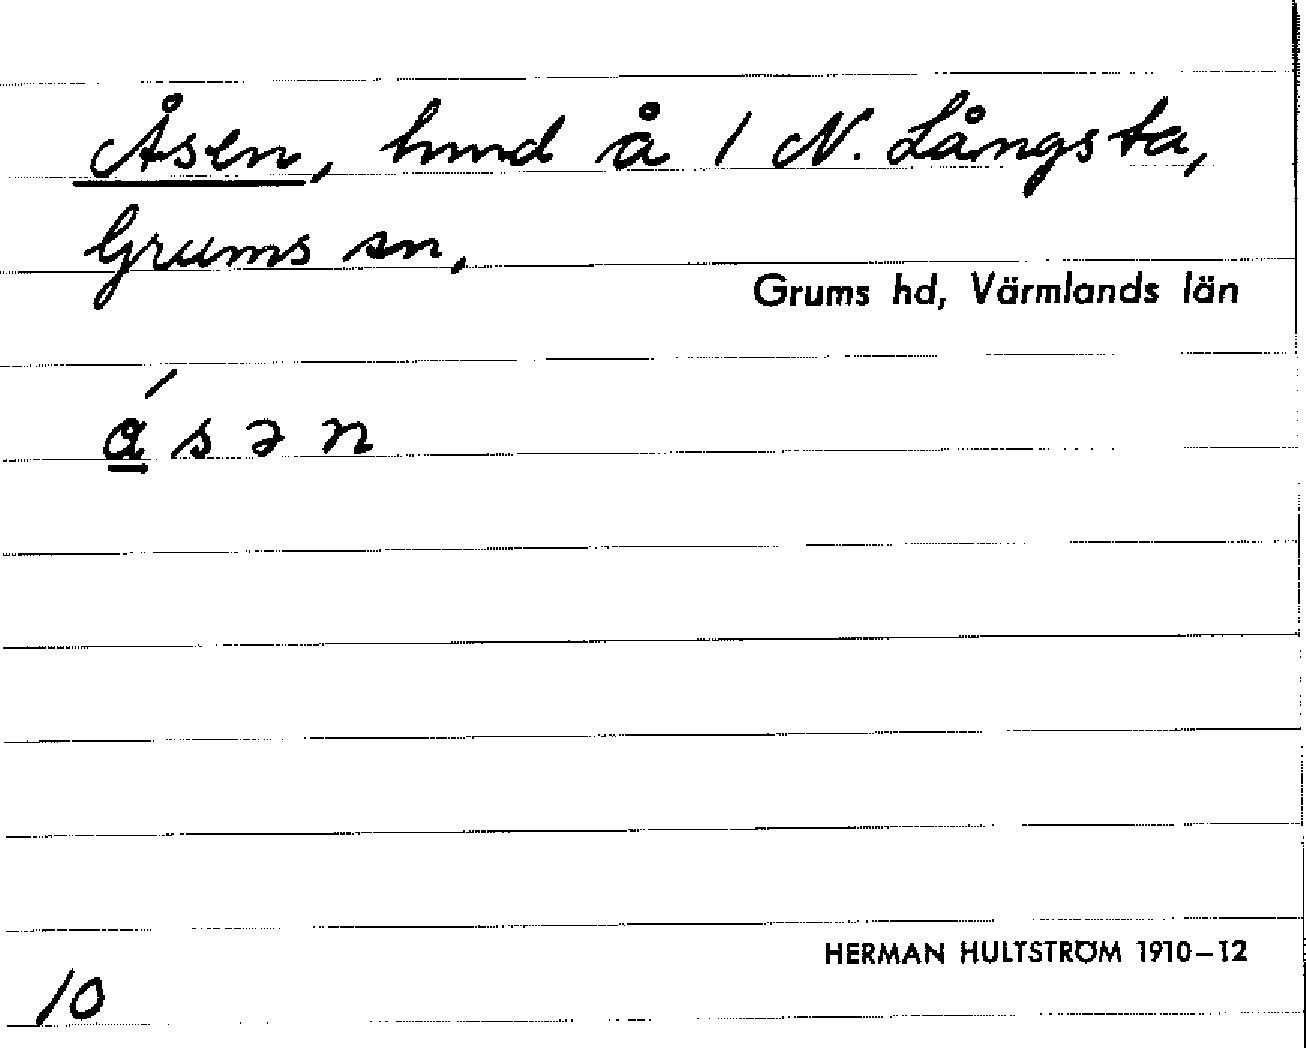 Åsen, hmd å 1 N. Långsta,
Grums sn,
Grums hd, Värmlands län
á s ə n
HERMAN HULTSTRÖM 1910–12
10